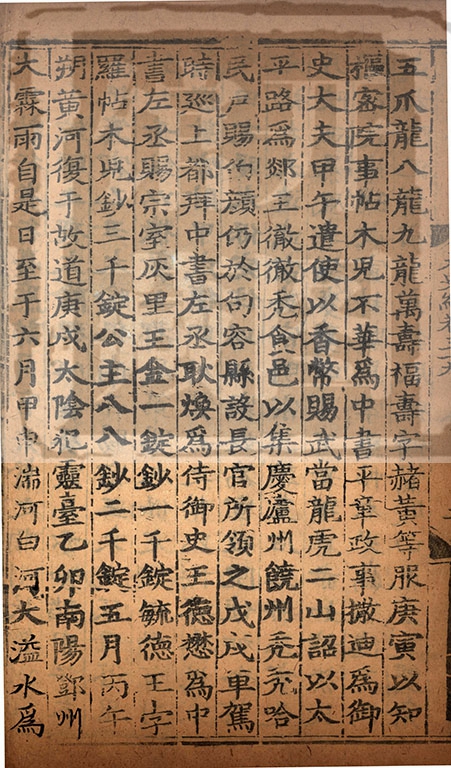 五爪龍八龍九龍萬壽福壽字赭黃等服庚寅以知
樞密院事帖木兒不華爲中書平章政事撒迪爲御
史大夫甲午遣使以香幣賜武當龍虎二山詔以太
平路爲郯王徹徹禿食邑以集慶廬州饒州禿禿哈
民戸賜伯顏仍於句容縣設長官所領之戊戌車駕
時巡上都拜中書左丞耿煥爲侍御史王德懋爲中
書左丞賜宗室灰里王金一錠鈔一千錠毓德王字
羅帖木兒鈔三千錠公主八八鈔二千錠五月丙午
朔黃河復于故道庚戌太陰犯靈臺乙卯南陽鄧州
大霖雨自是日至于六月甲申湍河白河大溢水爲